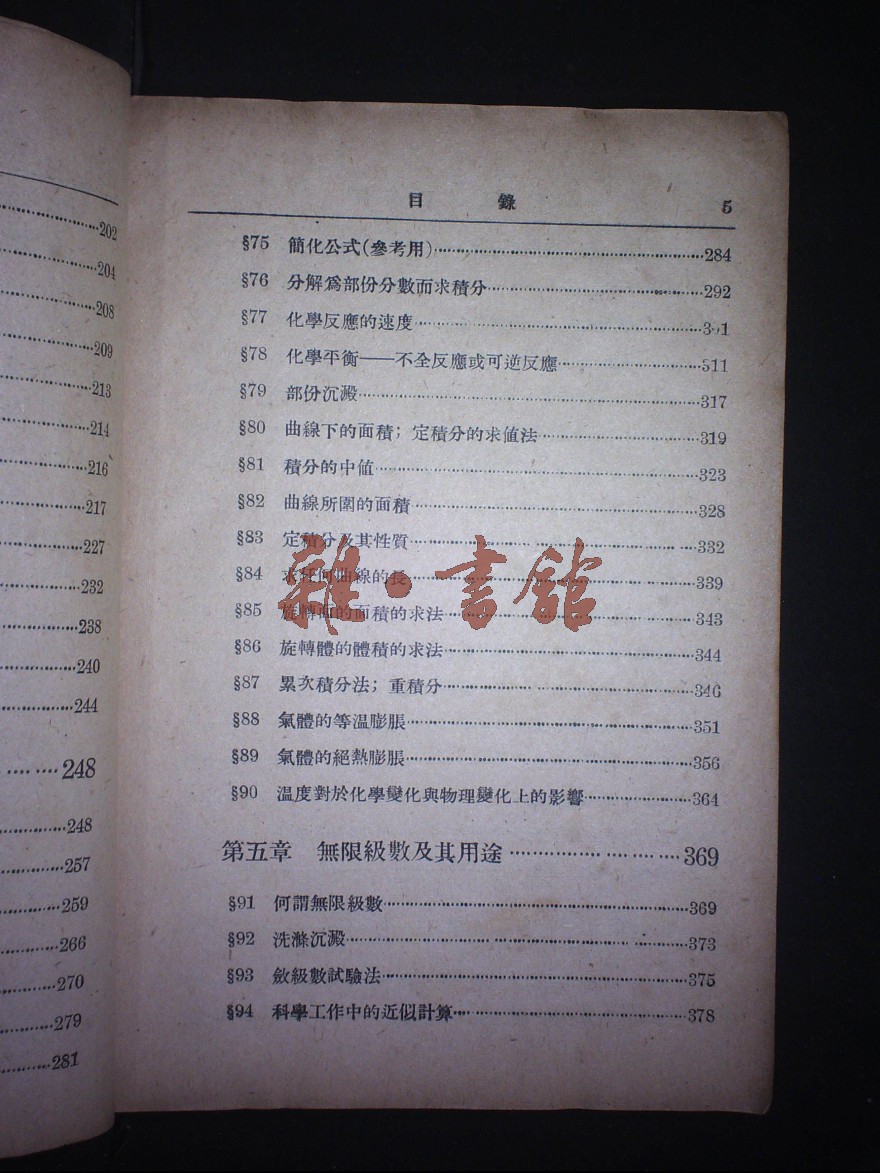 202
204
208
209
213
214
216
217
227
232
238
240
244
248
248
257
259
266
270
279
281
目錄 5
§75 簡化公式(參考用)……284
§76 分解爲部份分數而求積分……292
§77 化學反應的速度……3 1
§78 化學平衡——不全反應或可逆反應……311
§79 部份沉澱……317
§80 曲線下的面積；定積分的求値法……319
§81 積分的中値……323
§82 曲線所圍的面積……328
§83 定積分及其性質……332
§84 求任何曲線的長……339
§85 旋轉面的面積的求法……343
§86 旋轉體的體積的求法……344
§87 累次積分法；重積分……346
§88 氣體的等温膨脹……351
§89 氣體的絕熱膨脹……356
§90 温度對於化學變化與物理變化上的影響……364
第五章 無限級數及其用途……369
§91 何謂無限級數……369
§92 洗滌沉澱……373
§93 斂級數試驗法……375
§94 科學工作中的近似計算……378
雜·書館